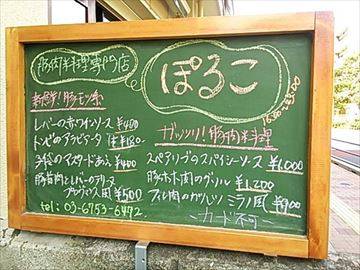 豚肉料理専門店
ぽるこ
16:00〜23:00
新感覚!豚モツ祭
レバーの赤ワインソース ¥400
トンビのアラビアータ ¥180
子袋のマスタードあえ ¥400
豚首肉とレバーのテリーヌ
フランス風 ¥500
tel: 03-6753-6472
ガッツリ!豚肉料理
スペアリブのスパイシーソース ¥1,000
豚ホホ肉のグリル ¥1,200
フィレ肉のカツレツ ミラノ風 ¥900
〜カード不可〜